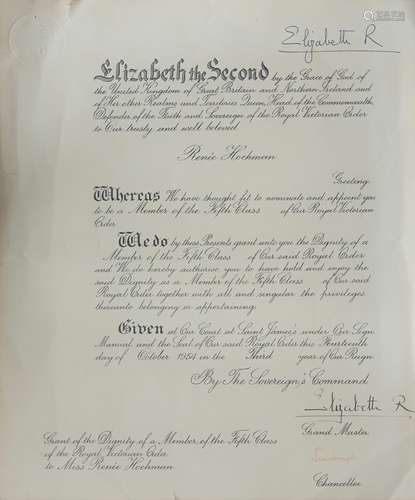 Elizabeth R
Elizabeth the Second by the Grace of God of
the United Kingdom of Great Britain and Northern Ireland and
of Her other Realms and Territories Queen, Head of the Commonwealth,
Defender of the Faith and Sovereign of the Royal Victorian Order
to Our trusty and well beloved
Renée Hochman
Greeting
Whereas We have thought fit to nominate and appoint you
to be a Member of the Fifth Class of Our Royal Victorian
Order
We do by these Presents grant unto you the Dignity of a
Member of the Fifth Class of Our said Royal Order
and We do hereby authorise you to have hold and enjoy the
said Dignity as a Member of the Fifth Class of Our said
Royal Order together with all and singular the privileges
thereunto belonging or appertaining.
Given at Our Court at Saint James's under Our Sign
Manual and the Seal of Our said Royal Order this Fourteenth
day of October 1954 in the Third year of Our Reign.
By The Sovereign's Command
Elizabeth R
Grand Master
Grant of the Dignity of a Member of the Fifth Class
of the Royal Victorian Order
to Miss Renée Hochman
Chancellor